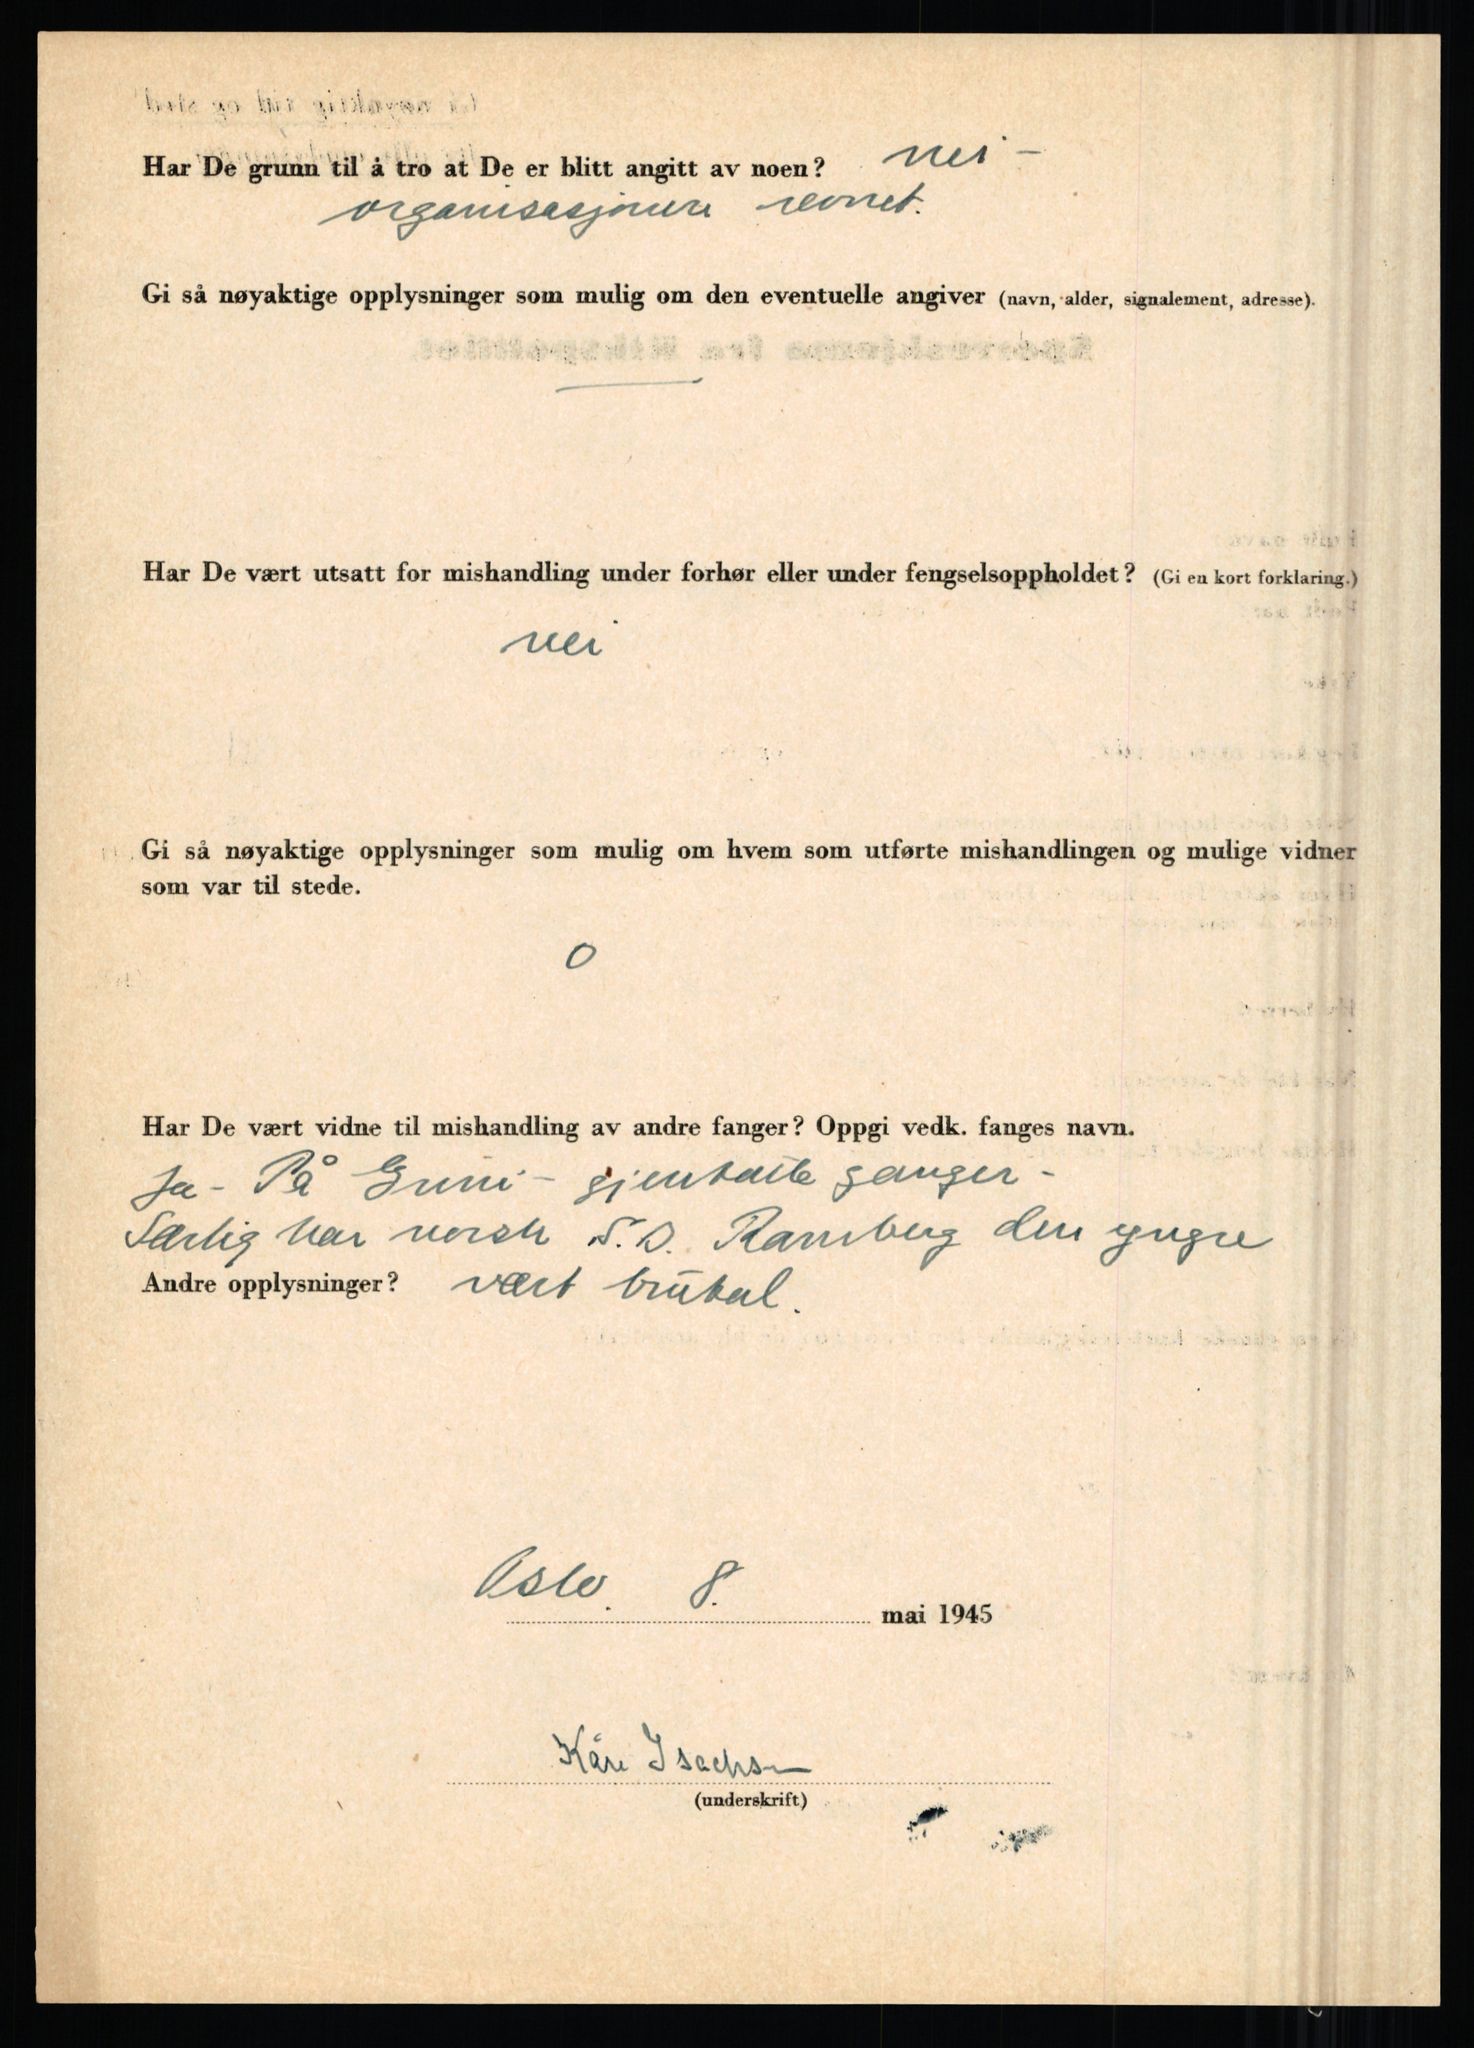 Har De grunn til å tro at De er blitt angitt av noen? nei -
organisasjonen revnet.
Gi så nøyaktige opplysninger som mulig om den eventuelle angiver (navn, alder, signalement, adresse).
Har De vært utsatt for mishandling under forhør eller under fengselsoppholdet? (Gi en kort forklaring.)
nei
Gi så nøyaktige opplysninger som mulig om hvem som utførte mishandlingen og mulige vidner
som var til stede.
0
Har De vært vidne til mishandling av andre fanger? Oppgi vedk. fanges navn.
Ja - På Grini - gjentatte ganger -
Særlig har norsk S.D. Ramberg den yngre
Andre opplysninger? vært brutal.
Oslo. 8. mai 1945
Kåre Isachsen
(underskrift)